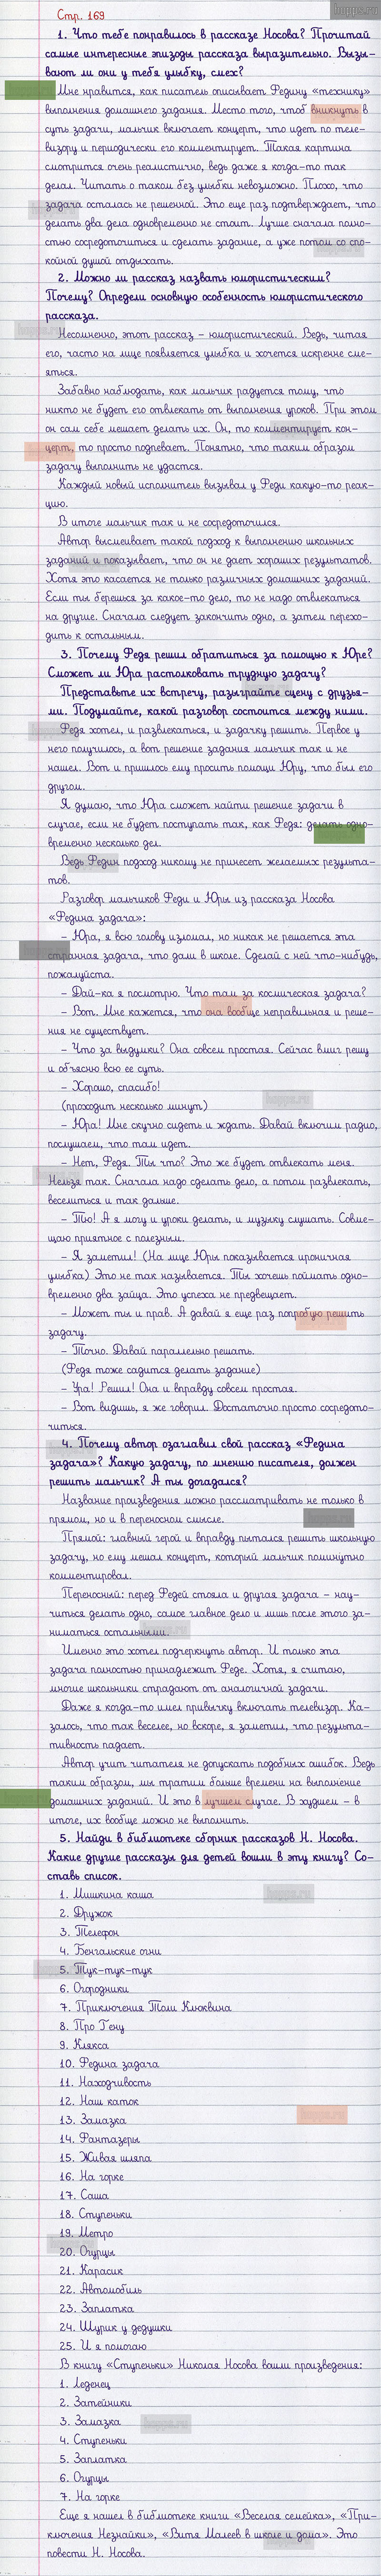 hopps.ru
Стр. 169
1. Что тебе понравилось в рассказе Носова? Прочитай
самые интересные эпизоды рассказа выразительно. Вызы-
вают ли они у тебя улыбку, смех?
Мне нравится, как писатель описывает Федину «технику»
выполнения домашнего задания. Место того, чтоб вникнуть в
суть задачи, мальчик включает концерт, что идет по теле-
визору и периодически его комментирует. Такая картина
смотрится очень реалистично, ведь даже я когда-то так
делал. Читать о таком без улыбки невозможно. Плохо, что
задача осталась не решенной. Это еще раз подтверждает, что
делать два дела одновременно не стоит. Лучше сначала полно-
стью сосредоточиться и сделать задание, а уже потом со спо-
койной душой отдыхать.
2. Можно ли рассказ назвать юмористическим?
Почему? Определи основную особенность юмористического
рассказа.
Несомненно, этот рассказ – юмористический. Ведь, читая
его, часто на лице появляется улыбка и хочется искренне сме-
яться.
Забавно наблюдать, как мальчик радуется тому, что
никто не будет его отвлекать от выполнения уроков. При этом
он сам себе мешает делать их. Он, то комментирует кон-
церт, то просто подпевает. Понятно, что таким образом
задачу выполнить не удастся.
Каждый новый исполнитель вызывал у Феди какую-то реак-
цию.
В итоге мальчик так и не сосредоточился.
Автор высмеивает такой подход к выполнению школьных
заданий и показывает, что он не дает хороших результатов.
Хотя это касается не только различных домашних заданий.
Если ты берешься за какое-то дело, то не надо отвлекаться
на другие. Сначала следует закончить одно, а затем перехо-
дить к остальным.
3. Почему Федя решил обратиться за помощью к Юре?
Сможет ли Юра растолковать трудную задачу?
Представьте их встречу, разыграйте сцену с друзья-
ми. Подумайте, какой разговор состоится между ними.
Федя хотел, и развлекаться, и задачку решить. Первое у
него получилось, а вот решение задания мальчик так и не
нашел. Вот и пришлось ему просить помощи Юру, что был его
другом.
Я думаю, что Юра сможет найти решение задачи в
случае, если не будет поступать так, как Федя: делать одно-
временно несколько дел.
Ведь Федин подход никому не принесет желаемых результа-
тов.
Разговор мальчиков Феди и Юры из рассказа Носова
«Федина задача»:
– Юра, я всю голову изломал, но никак не решается эта
странная задача, что дали в школе. Сделай с ней что-нибудь,
пожалуйста.
– Дай-ка я посмотрю. Что там за космическая задача?
– Вот. Мне кажется, что она вообще неправильная и реше-
ния не существует.
– Что за выдумки? Она совсем простая. Сейчас вмиг решу
и объясню всю ее суть.
– Хорошо, спасибо!
(проходит несколько минут)
– Юра! Мне скучно сидеть и ждать. Давай включим радио,
послушаем, что там идет.
– Нет, Федя. Ты что? Это же будет отвлекать меня.
Нельзя так. Сначала надо сделать дело, а потом развлекать,
веселиться и так дальше.
– Тю! А я могу и уроки делать, и музыку слушать. Совме-
щаю приятное с полезным.
– Я заметил! (На лице Юры показывается ироничная
улыбка) Это не так называется. Ты хочешь поймать одно-
временно два зайца. Это успеха не предвещает.
– Может ты и прав. А давай я еще раз попробую решить
задачу.
– Точно. Давай параллельно решать.
(Федя тоже садится делать задание)
– Ура! Решил! Она и вправду совсем простая.
– Вот видишь, я же говорил. Достаточно просто сосредото-
читься.
4. Почему автор озаглавил свой рассказ «Федина
задача»? Какую задачу, по мнению писателя, должен
решить мальчик? А ты догадался?
Название произведения можно рассматривать не только в
прямом, но и в переносном смысле.
Прямой: главный герой и вправду пытался решить школьную
задачу, но ему мешал концерт, который мальчик поминутно
комментировал.
Переносный: перед Федей стояла и другая задача – нау-
читься делать одно, самое главное дело и лишь после этого за-
ниматься остальными.
Именно это хотел подчеркнуть автор. И только эта
задача полностью принадлежит Феде. Хотя, я считаю,
многие школьники страдают от аналогичной задачи.
Даже я когда-то имел привычку включать телевизор. Ка-
залось, что так веселее, но вскоре, я заметил, что результа-
тивность падает.
Автор учит читателя не допускать подобных ошибок. Ведь
таким образом, мы тратим больше времени на выполнение
домашних заданий. И это в лучшем случае. В худшем – в
итоге, их вообще можно не выполнить.
5. Найди в библиотеке сборник рассказов Н. Носова.
Какие другие рассказы для детей вошли в эту книгу? Со-
ставь список.
1. Мишкина каша
2. Дружок
3. Телефон
4. Бенгальские огни
5. Тук-тук-тук
6. Огородники
7. Приключения Толи Клюквина
8. Про Гену
9. Клякса
10. Федина задача
11. Находчивость
12. Наш каток
13. Замазка
14. Фантазеры
15. Живая шляпа
16. На горке
17. Саша
18. Ступеньки
19. Метро
20. Огурцы
21. Карасик
22. Автомобиль
23. Заплатка
24. Шурик у дедушки
25. И я помогаю
В книгу «Ступеньки» Николая Носова вошли произведения:
1. Леденец
2. Затейники
3. Замазка
4. Ступеньки
5. Заплатка
6. Огурцы
7. На горке
Еще я нашел в библиотеке книги «Веселая семейка», «При-
ключения Незнайки», «Витя Малеев в школе и дома». Это
повести Н. Носова.